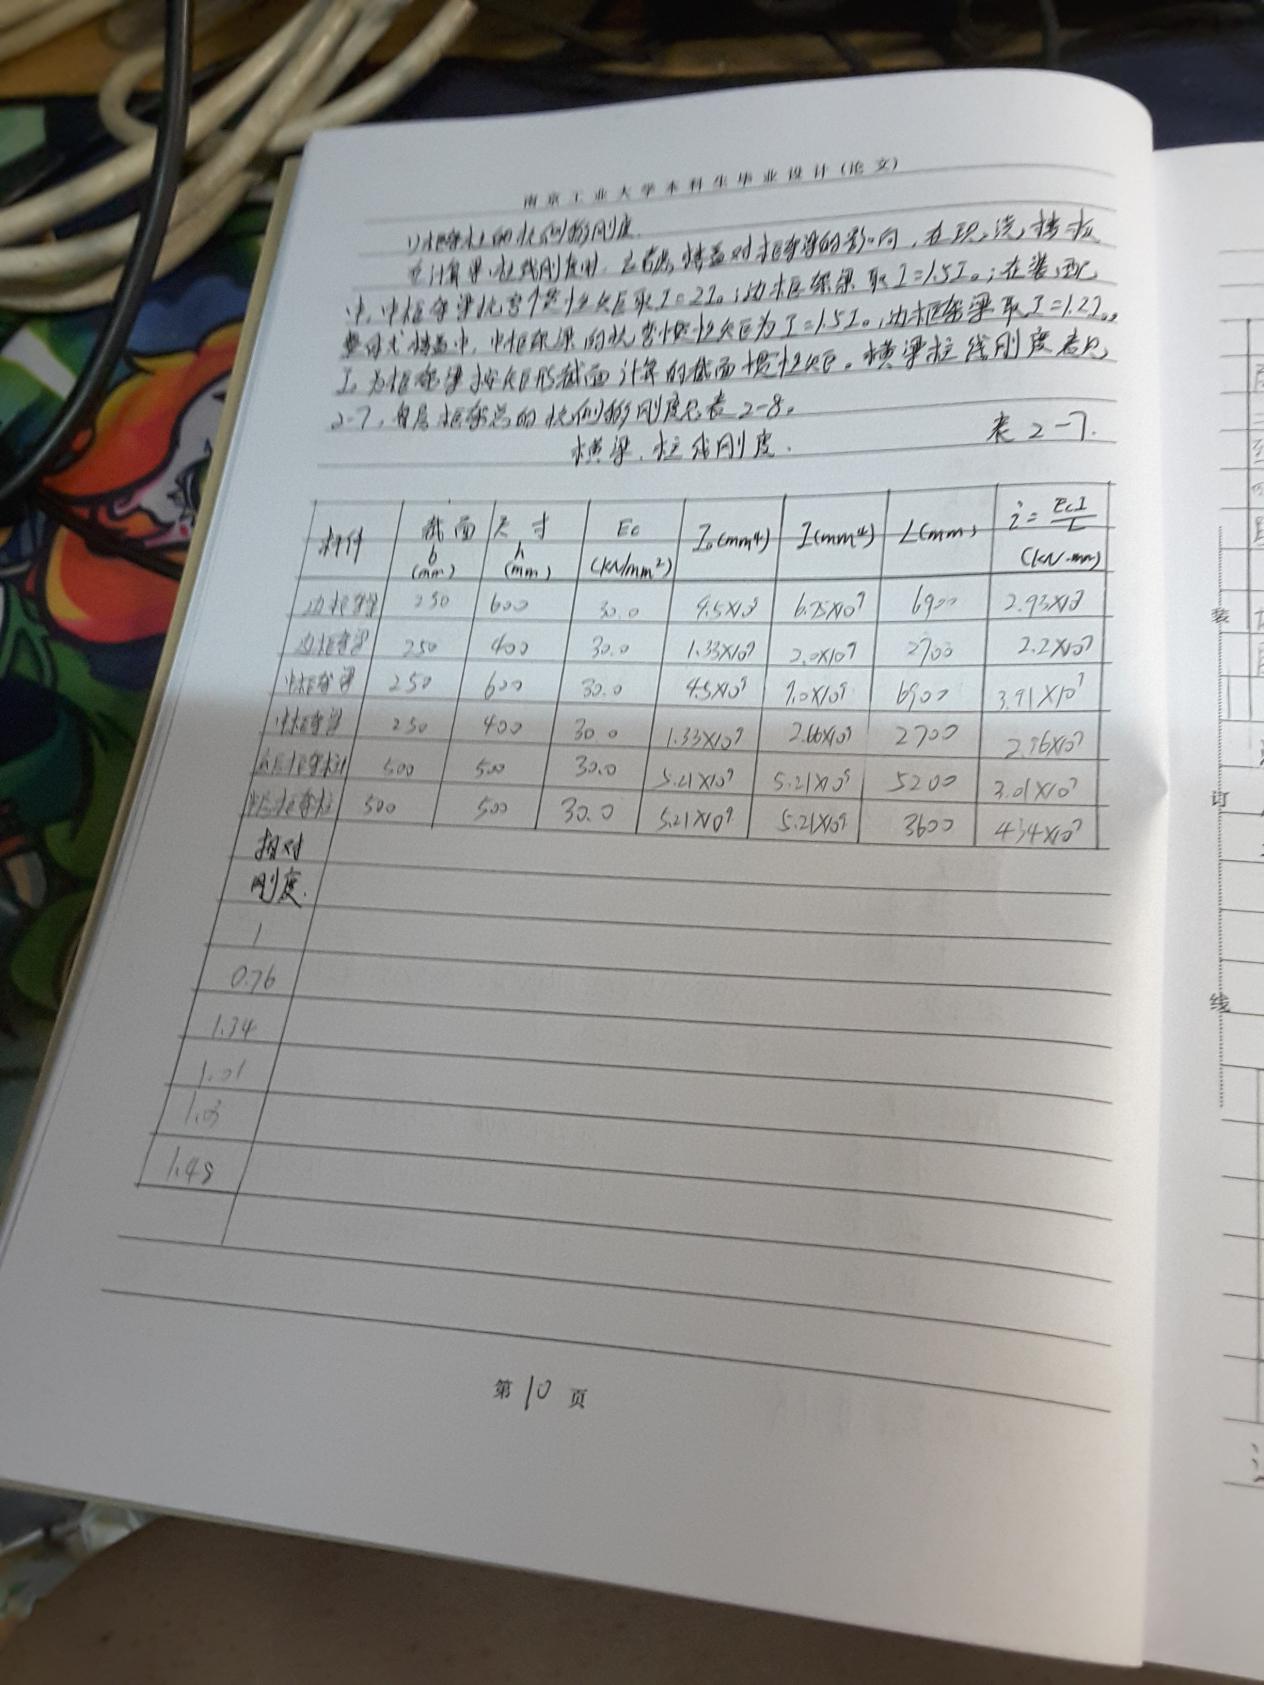 南京工业大学本科生毕业设计(论文)
1)框架柱的抗侧移刚度.
在计算梁、柱线刚度时,应考虑楼盖对框架梁的影响,在现浇楼板
中,中框架梁抗弯惯性矩取I=2I。;边框架梁取I=1.5I。;在装配
整体式楼盖中,中框架梁的抗弯惯性矩为I=1.5I。,边框架梁取I=1.2I。,
I。为框架梁按矩形截面计算的截面惯性矩。横梁柱线刚度表见
2-7,每层框架总的抗侧移刚度见表2-8。
横梁、柱线刚度. 表2-7.
杆件 截面尺寸 Ec I。(mm⁴) I(mm⁴) L(mm) i=EcI/L
b(mm) h(mm) (kN/mm²) (kN·mm)
边框架梁 250 600 30.0 4.5×10⁹ 6.75×10⁹ 6900 2.93×10⁷
边框架梁 250 400 30.0 1.33×10⁹ 2.0×10⁹ 2700 2.2×10⁷
中框架梁 250 600 30.0 4.5×10⁹ 9.0×10⁹ 6900 3.91×10⁷
中框架梁 250 400 30.0 1.33×10⁹ 2.66×10⁹ 2700 2.96×10⁷
底层框架柱 500 500 30.0 5.21×10⁹ 5.21×10⁹ 5200 3.01×10⁷
中层框架柱 500 500 30.0 5.21×10⁹ 5.21×10⁹ 3600 4.34×10⁷
相对
刚度.
1
0.76
1.34
1.01
1.03
1.48
第10页
装
订
线